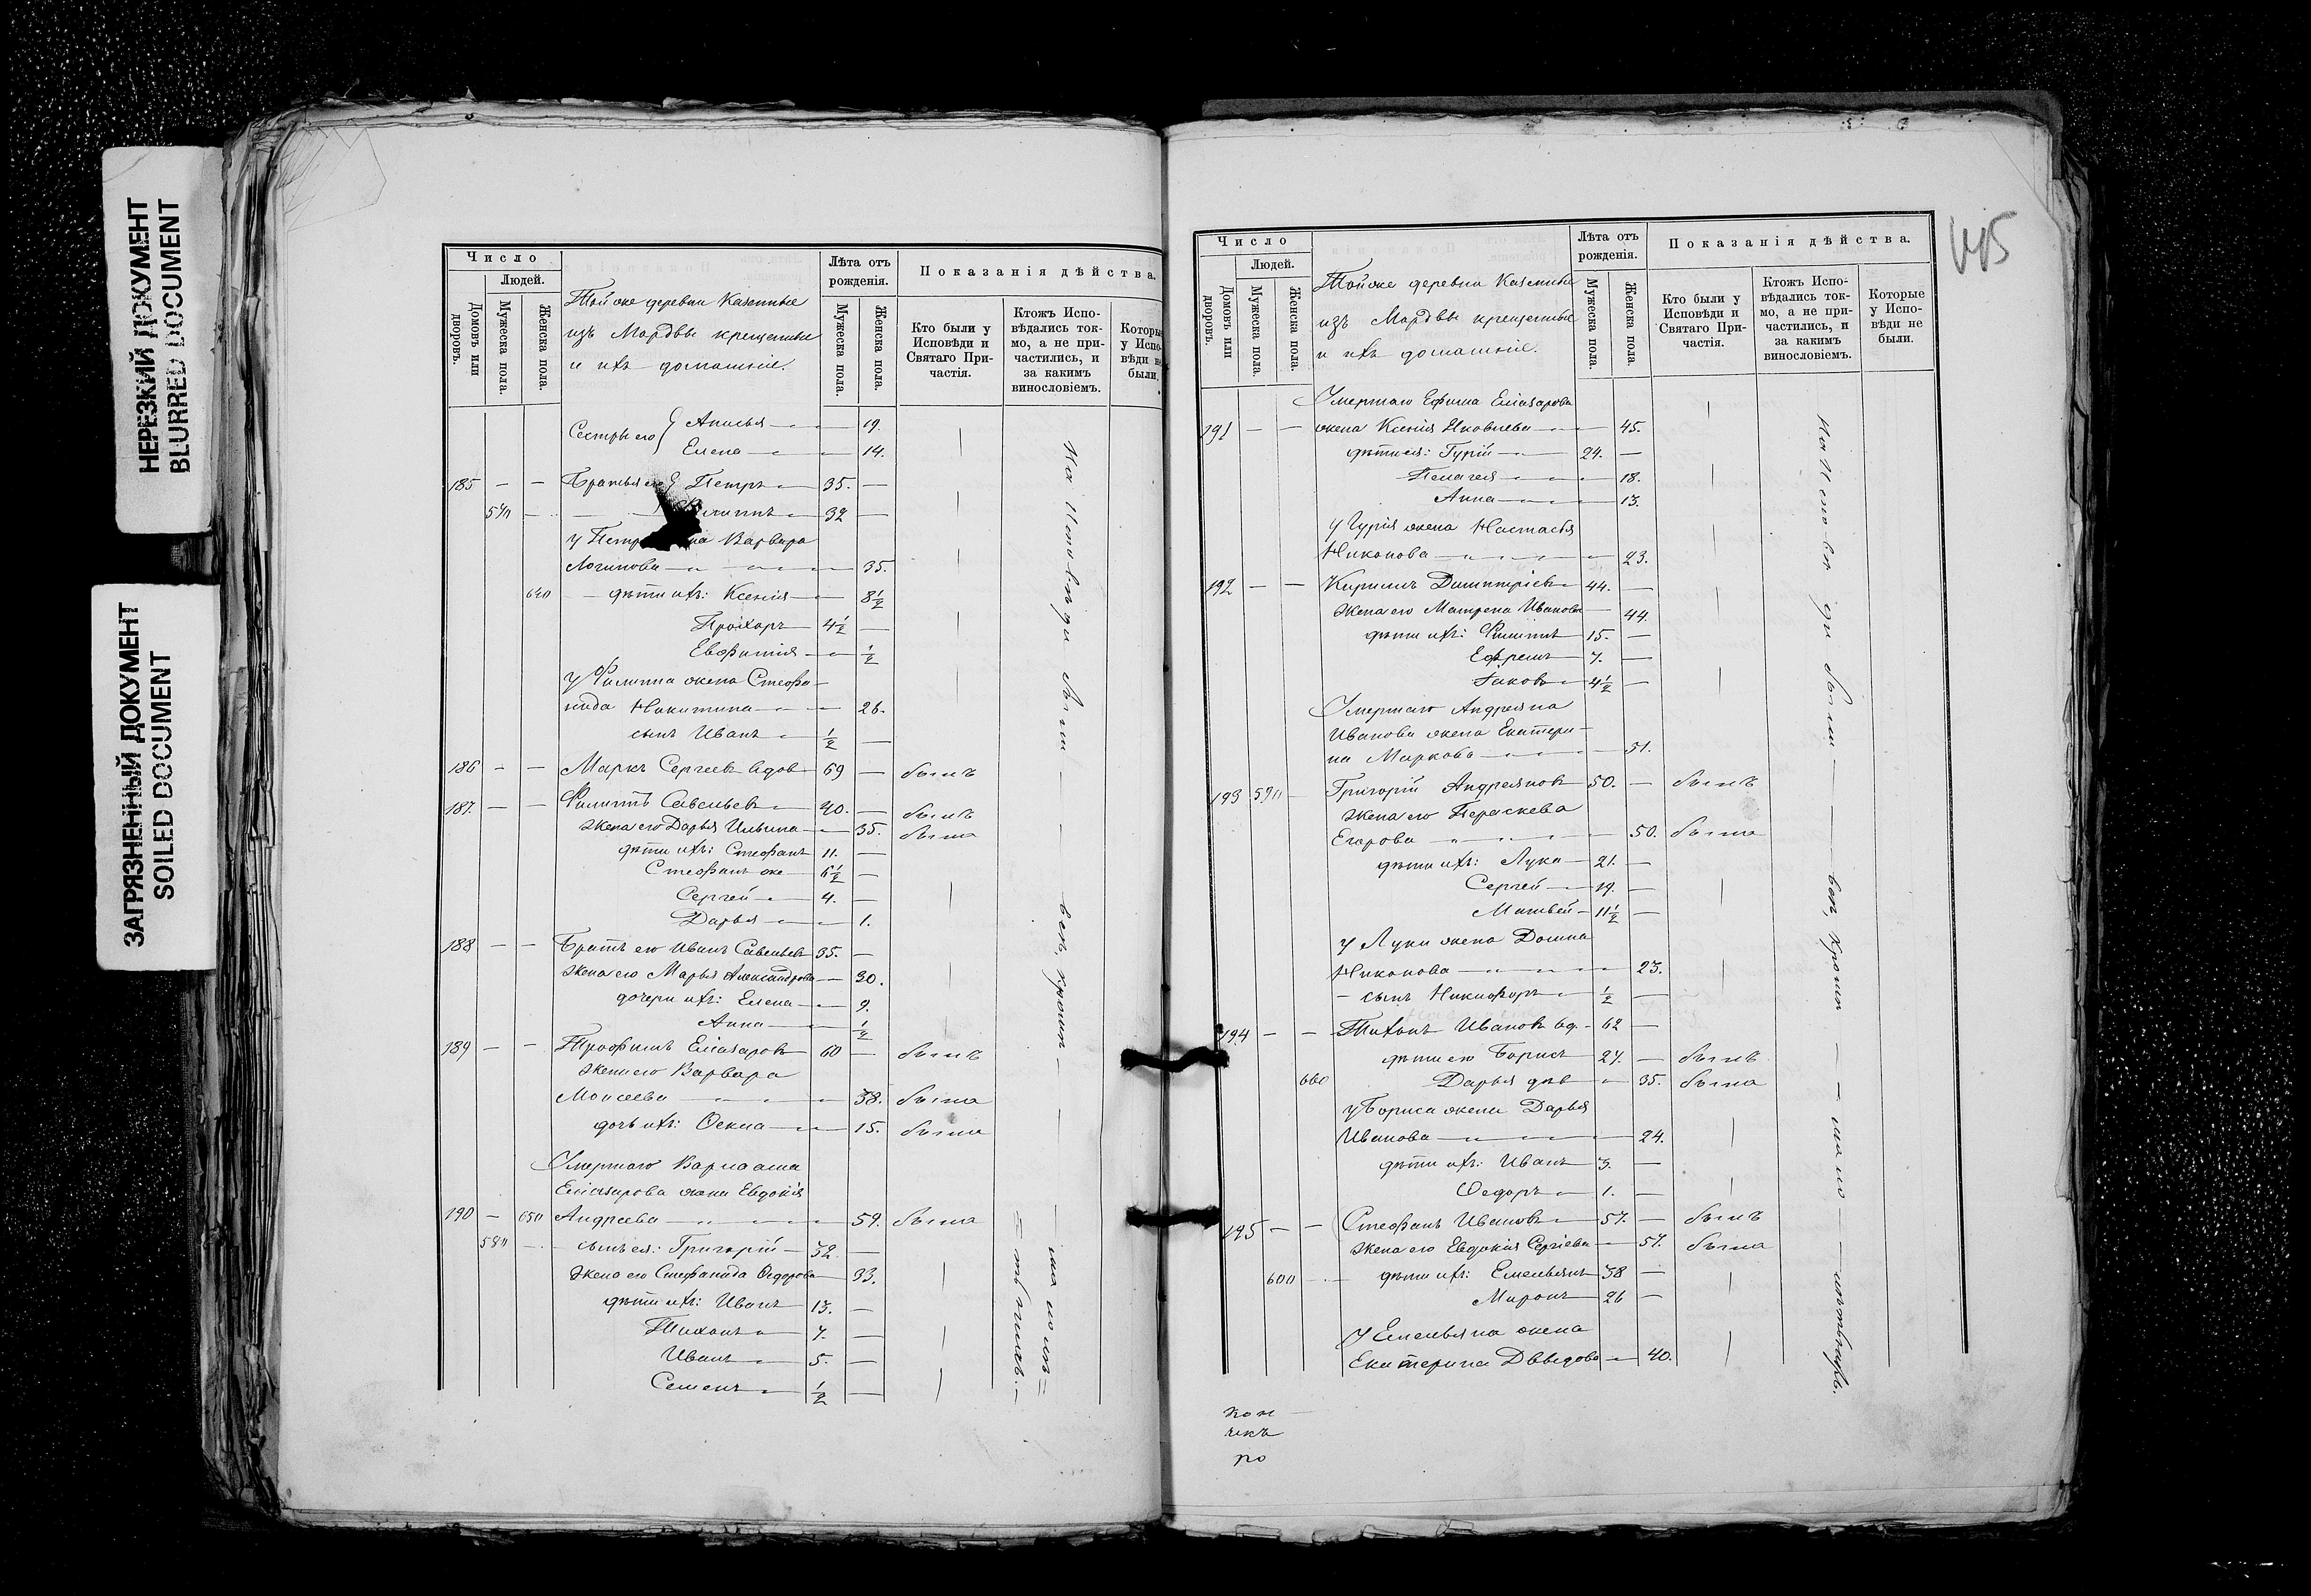 НЕРЕЗКИЙ ДОКУМЕНТ
BLURRED DOCUMENT
ЗАГРЯЗНЕННЫЙ ДОКУМЕНТ
SOILED DOCUMENT
Число
Людей.
Домовъ или дворовъ.
Мужеска пола.
Женска пола.
Той же деревни Казенные
изъ Мордвы крещенные
и ихъ домашніе.
Лѣта отъ рожденія.
Мужеска пола.
Женска пола.
Показанія дѣйства.
Кто были у Исповѣди и Святаго Причастія.
Ктожъ Исповѣдались токмо, а не причастились, и за какимъ винословіемъ.
Которые у Исповѣди не были.
Сестры его { Анисья 19.
Елена 14.
185 Братья его { Петръ 35.
Филиппъ 32
у Петра жена Варвара
Логинова 35.
640 дѣти ихъ: Ксенія 8½
Прохоръ 4½
Евфимія ½
У Филиппа жена Стефа-
нида Никитина 26.
сынъ Иванъ ½
186 Маркъ Сергеевъ вдов 69 былъ
187. Филиппъ Савельевъ 40. былъ
жена его Дарья Ильина 35. была
дѣти ихъ: Стефанъ 11.
Стефанъ же 6½
Сергей 4.
Дарья 1.
188 Братъ его Иванъ Савельевъ 35.
жена его Марья Александрова 30.
дочери ихъ: Елена 9.
Анна ½
189 Трофимъ Елiазаровъ 60 былъ
жена его Варвара
Моисеева 38. была
дочь ихъ: Фекла 15. была
Умершаго Варлаама
Елiазарова жена Евдокія
190 650 Андреева 59. была
580 сынъ ея: Григорій 32.
жена его Стефанида Федорова 33.
дѣти ихъ: Иванъ 13.
Тихонъ 7.
Иванъ 5.
Семенъ ½
На Исповѣди были
415
Число
Людей.
Домовъ или дворовъ.
Мужеска пола.
Женска пола.
Той же деревни Казенные
изъ Мордвы крещенные
и ихъ домашніе.
Лѣта отъ рожденія.
Мужеска пола.
Женска пола.
Показанія дѣйства.
Кто были у Исповѣди и Святаго Причастія.
Ктожъ Исповѣдались токмо, а не причастились, и за какимъ винословіемъ.
Которые у Исповѣди не были.
Умершаго Ефима Елiазарова
191 жена Ксенія Яковлева 45.
дѣти ея: Гурій 24.
Пелагея 18.
Анна 13.
У Гурія жена Настасья
Никонова 23.
192 Кириллъ Димитріевъ 44.
жена его Матрена Иванова 44.
дѣти ихъ: Филиппъ 15.
Ефремъ 7.
Яковъ 4½
Умершаго Андреяна
Иванова жена Екатери-
на Маркова 51.
193 590 Григорій Андреяновъ 50. былъ
жена его Параскева
Егорова 50. была
дѣти ихъ: Лука 21.
Сергей 19.
Матвей 11½
у Луки жена Домна
Никонова 23.
сынъ Никифоръ ½
194 Тихонъ Ивановъ вд. 62
дѣти его Борисъ 27. былъ
660 Дарья дѣв 35. была
у Бориса жена Дарья
Иванова 24.
дѣти ихъ: Иванъ 3.
Федоръ 1.
195 Стефанъ Ивановъ 57. былъ
жена его Евдокія Сергіева 57. была
600 дѣти ихъ: Емельянъ 38
Миронъ 26
У Емельяна жена
Екатерина Давыдова 40.
На Исповѣди были